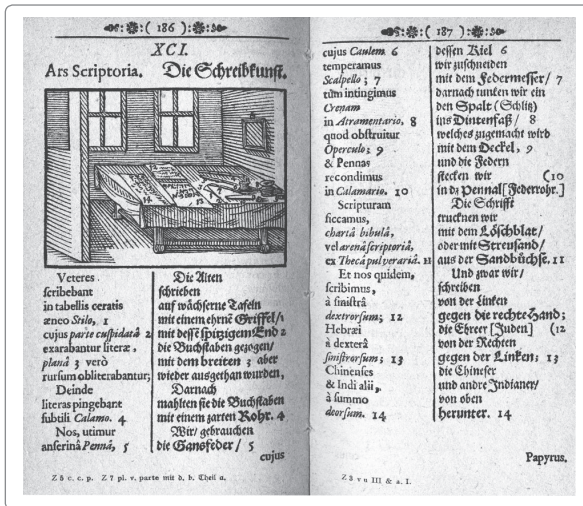 ( 186 )
XCI.
Ars Scriptoria. Die Schreibkunſt.
Veteres
ſcribebant
in tabellis ceratis
æneo Stilo, 1
cujus parte cuſpidatâ 2
exarabantur literæ,
planâ 3 verò
rurſum obliterabantur;
Deinde
literas pingebant
ſubtili Calamo. 4
Nos, utimur
anſerinâ Pennâ, 5
Die Alten
ſchrieben
auf wächſerne Tafeln
mit einem ehrnē Griffel/ 1
mit deſſē ſpitzigem End 2
die Buchſtaben gezogen/
mit dem breiten 3 aber
wieder ausgethan wurden,
Darnach
mahlten ſie die Buchſtaben
mit einem zarten Rohr. 4
Wir/ gebrauchen
die Gansfeder/ 5
cujus
Z 5 c. c. p. Z 7 pl. v. parte mit d. b. Theil a.
( 187 )
cujus Caulem 6
temperamus
Scalpello; 7
tùm intingimus
Crenam
in Atramentario, 8
quod obſtruitur
Operculo; 9
& Pennas
recondimus
in Calamario. 10
Scripturam
ſiccamus,
chartâ bibulâ,
vel arenâ ſcriptoriâ,
ex Thecâ pulverariâ. 11
Et nos quidem,
ſcribimus,
à ſiniſtrâ
dextrorſum; 12
Hebræi
à dexterâ
ſiniſtrorſum; 13
Chinenſes
& Indi alii,
à ſummo
deorſum. 14
deſſen Kiel 6
wir zuſchneiden
mit dem Federmeſſer/ 7
darnach tunken wir ein
den Spalt (Schlitz)
ins Dintenfaß/ 8
welches zugemacht wird
mit dem Deckel, 9
und die Federn
ſtecken wir (10
in dz Pennal [Federrohr.]
Die Schrifft
trucknen wir
mit dem Löſchblat/
oder mit Streuſand/
aus der Sandbüchſe. 11
Und zwar wir/
ſchreiben
von der Linken
gegen die rechte Hand;
die Ebreer [Juden] (12
von der Rechten
gegen der Linken; 13
die Chineſer
und andre Indianer/
von oben
herunter. 14
Papyrus.
Z 3 v u III & a. I.